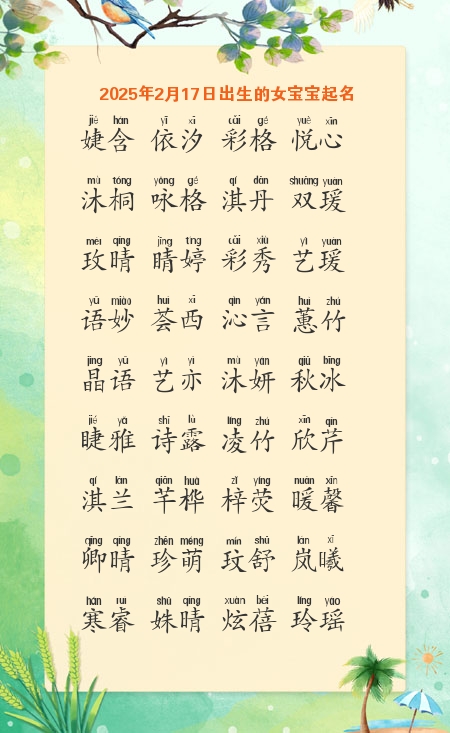 2025年2月17日出生的女宝宝起名
jié hán yī xī cǎi gé yuè xīn
婕含 依汐 彩格 悦心
mù tóng yǒng gé qí dān shuāng yuàn
沐桐 咏格 淇丹 双瑗
méi qíng jīng tíng cǎi xiù yì yuàn
玫晴 睛婷 彩秀 艺瑗
yǔ miào huì xī qìn yán huì zhú
语妙 荟西 沁言 蕙竹
jīng yǔ yì yì mù yán qiū bīng
晶语 艺亦 沐妍 秋冰
jié yǎ shī lù líng zhú xīn qín
睫雅 诗露 凌竹 欣芹
qí lán qiān huà zǐ yíng nuǎn xīn
淇兰 芊桦 梓荧 暖馨
qīng qíng zhēn méng mín shū lán xī
卿晴 珍萌 玟舒 岚曦
hán ruì shū qíng xuàn bèi líng yáo
寒睿 姝晴 炫蓓 玲瑶